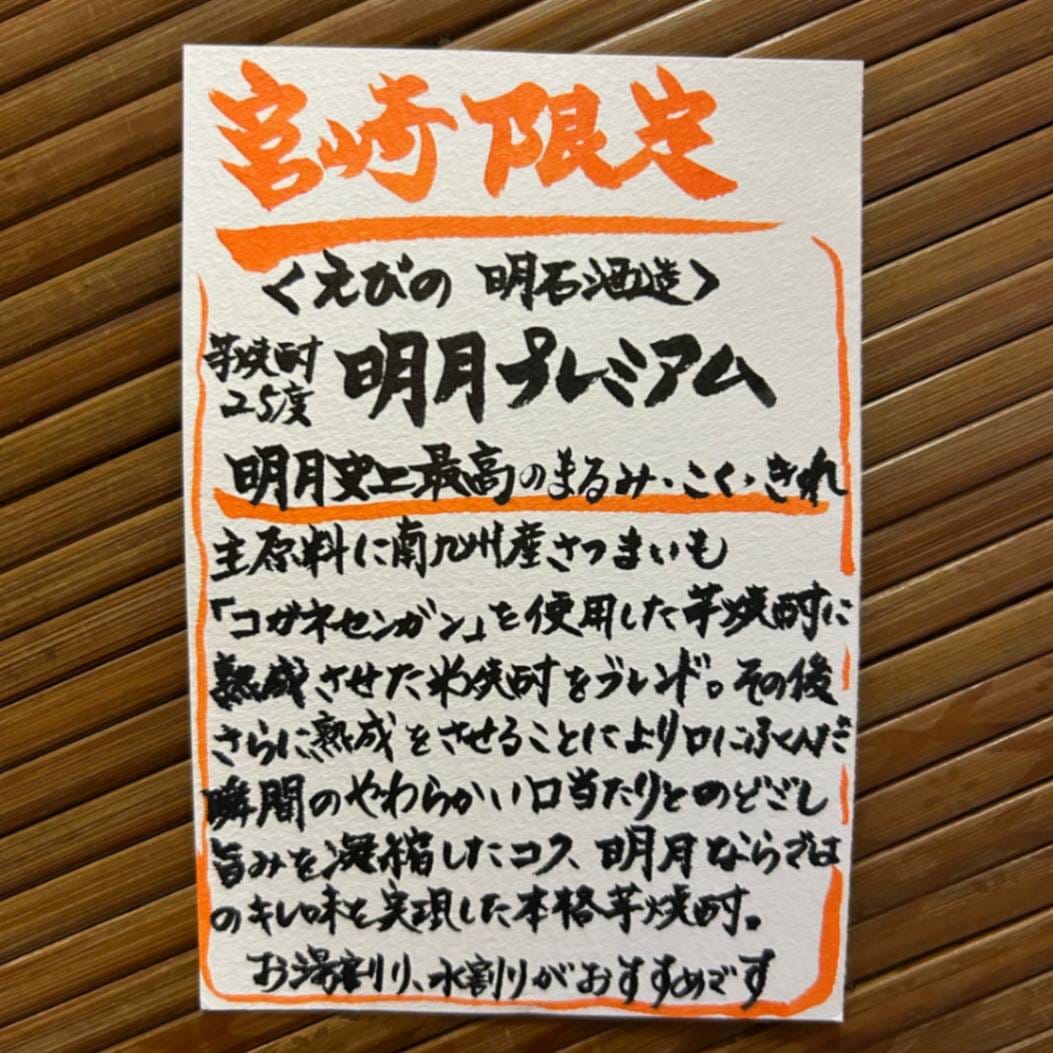 宮崎限定
〈えびの 明石酒造〉
芋焼酎
25度
明月プレミアム
明月史上最高のまるみ・こく・きれ
主原料に南九州産さつまいも
「コガネセンガン」を使用した芋焼酎に
熟成させた米焼酎をブレンド。その後
さらに熟成をさせることにより口にふくんだ
瞬間のやわらかい口当たりとのどごし
旨みを凝縮したコク、明月ならでは
のキレ味を実現した本格芋焼酎。
お湯割り、水割りがおすすめです